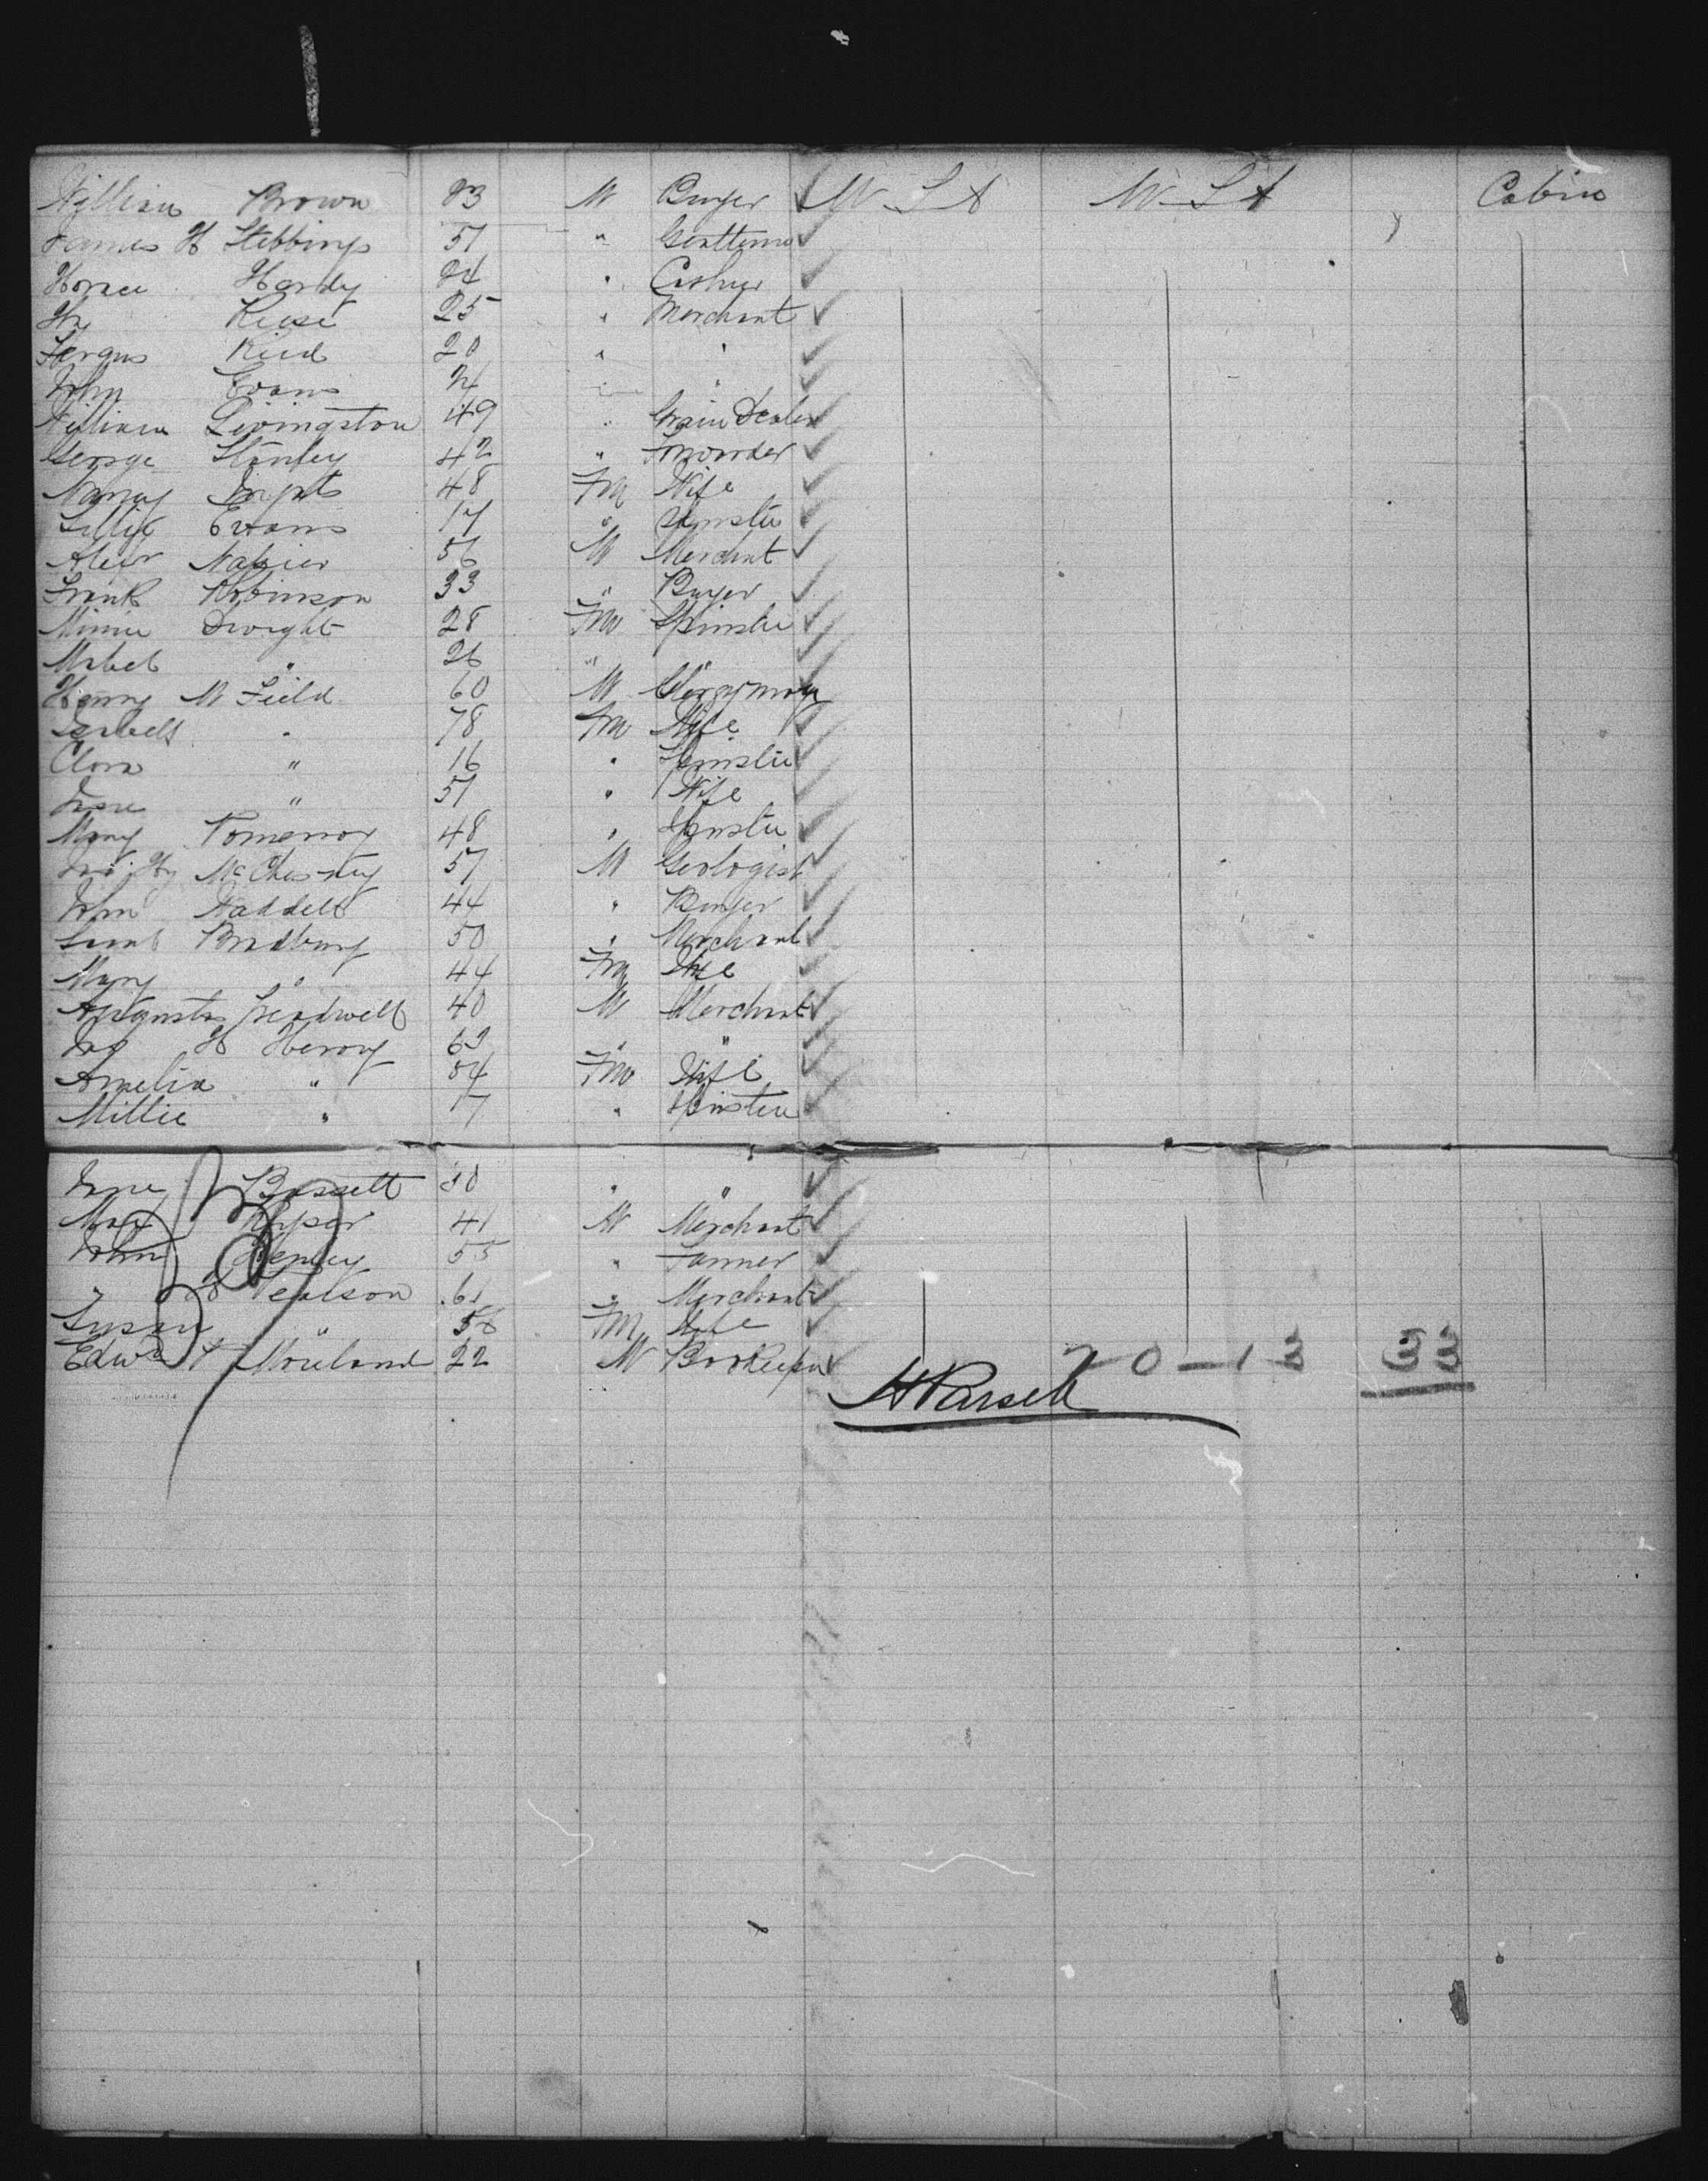 William Brown 23 M Buyer U S A U S A Cabin
James H Stebbings 51 " Gentleman
Horace Hardy 24 " Cashier
Hy Reese 25 " Merchant
Fergus Reid 20 " "
John Evans 24 " "
William Livingston 49 " Grain Dealer
George Stanley 42 " Forwarder
Nancy 48 Fm Wife
Lillie Evans 17 " Spinster
Alexr Napier 56 M Merchant
Frank Robinson 33 " Buyer
Minnie Dwight 28 Fm Spinster
Mabel " 26 " "
Henry M Field 60 M Clergyman
Isabell " 78 Fm Wife
Clara " 16 " Spinster
Jane " 51 " Wife
Mary Pomerroy 48 " Spinster
Hy McChesney 57 M Geologist
John Waddell 44 " Buyer
Bradbury 50 " Merchant
Mary " 44 Fm Wife
Augustus Treadwell 40 M Merchant
Jno H Henry 62 " "
Amelia " 54 Fm Wife
Millie " 17 " Spinster
Jane Bassett 30 " "
Max 41 M Merchant
John 55 " Farmer
" 61 " Merchant
Susan " 56 Fm Wife
Edwd Moreland 22 M Bookeeper 20-13 33
H Parsell